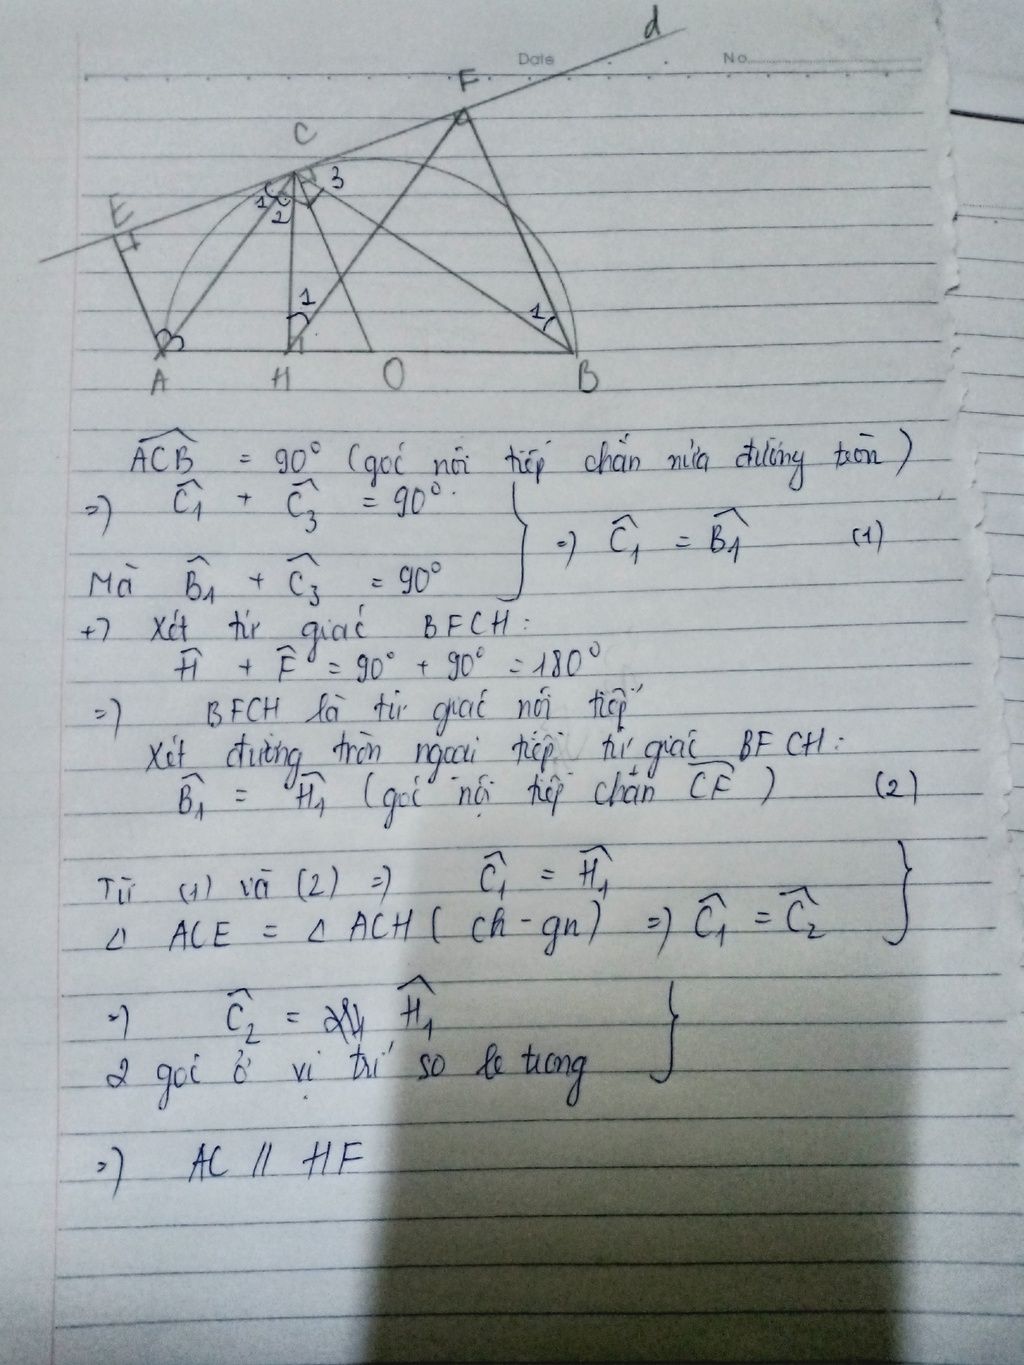 d
Date
No
F
C
3
E
1
2
1
1
A H O B
ACB = 90° (góc nội tiếp chắn nửa đường tròn)
=> C1 + C3 = 90°
=> C1 = B1 (1)
Mà B1 + C3 = 90°
+) Xét tứ giác BFCH:
H + F = 90° + 90° = 180°
=> BFCH là tứ giác nội tiếp
Xét đường tròn ngoại tiếp tứ giác BFCH:
B1 = H1 (góc nội tiếp chắn CF) (2)
Từ (1) và (2) => C1 = H1
Δ ACE = Δ ACH (ch - gn) => C1 = C2
=> C2 = H1
2 góc ở vị trí so le trong
=> AC // HF